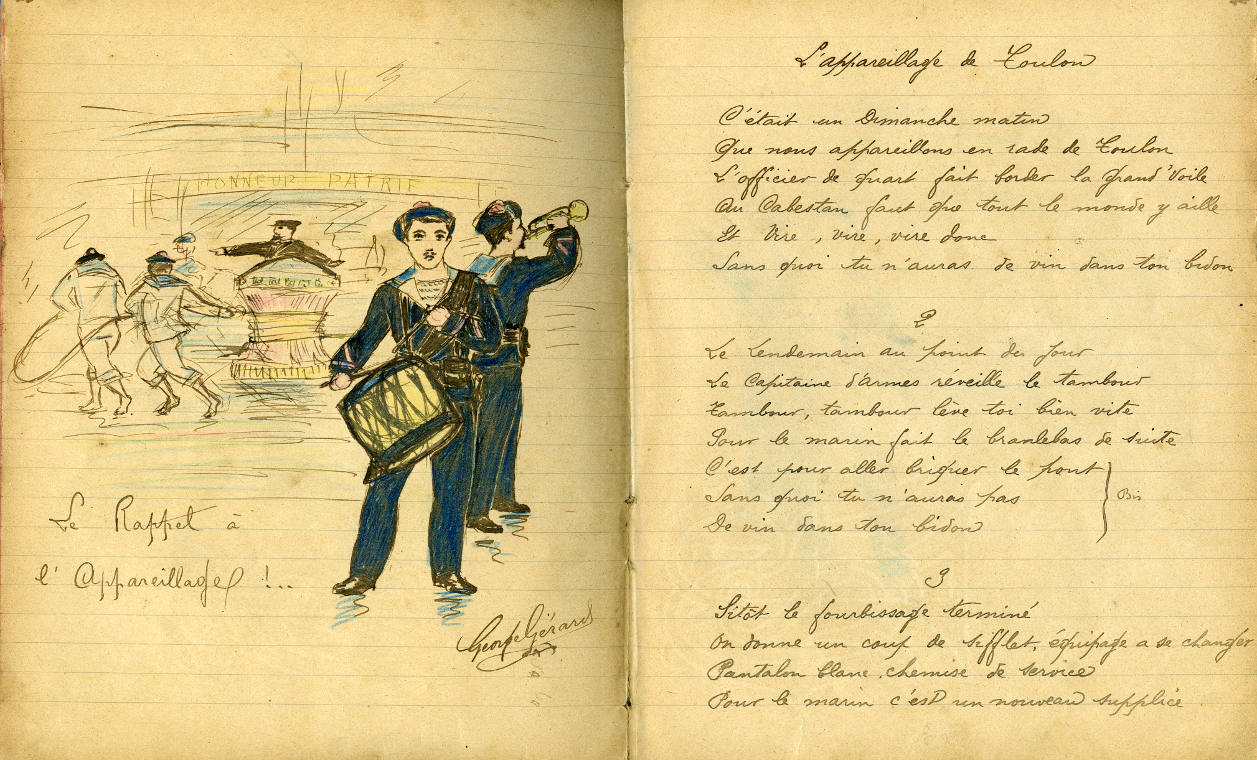 HONNEUR PATRIE
Le Rappel à
l' Appareillage !..
George Gérard
L'appareillage de Toulon
C'était un Dimanche matin
Que nous appareillons en rade de Toulon
L'officier de quart fait border la grand'voile
Au Cabestan faut que tout le monde y aille
Et Vire, vire, vire donc
Sans quoi tu n'auras de vin dans ton bidon
2
Le Lendemain au point du jour
Le Capitaine d'armes réveille le tambour
Tambour, tambour lève toi bien vite
Pour le marin fait le branlebas de suite
C'est pour aller briquer le pont
Sans quoi tu n'auras pas
Bis
De vin dans ton bidon
3
Sitôt le fourbissage terminé
On donne un coup de sifflet, équipage a se changer
Pantalon blanc, chemise de service
Pour le marin c'est un nouveau supplice